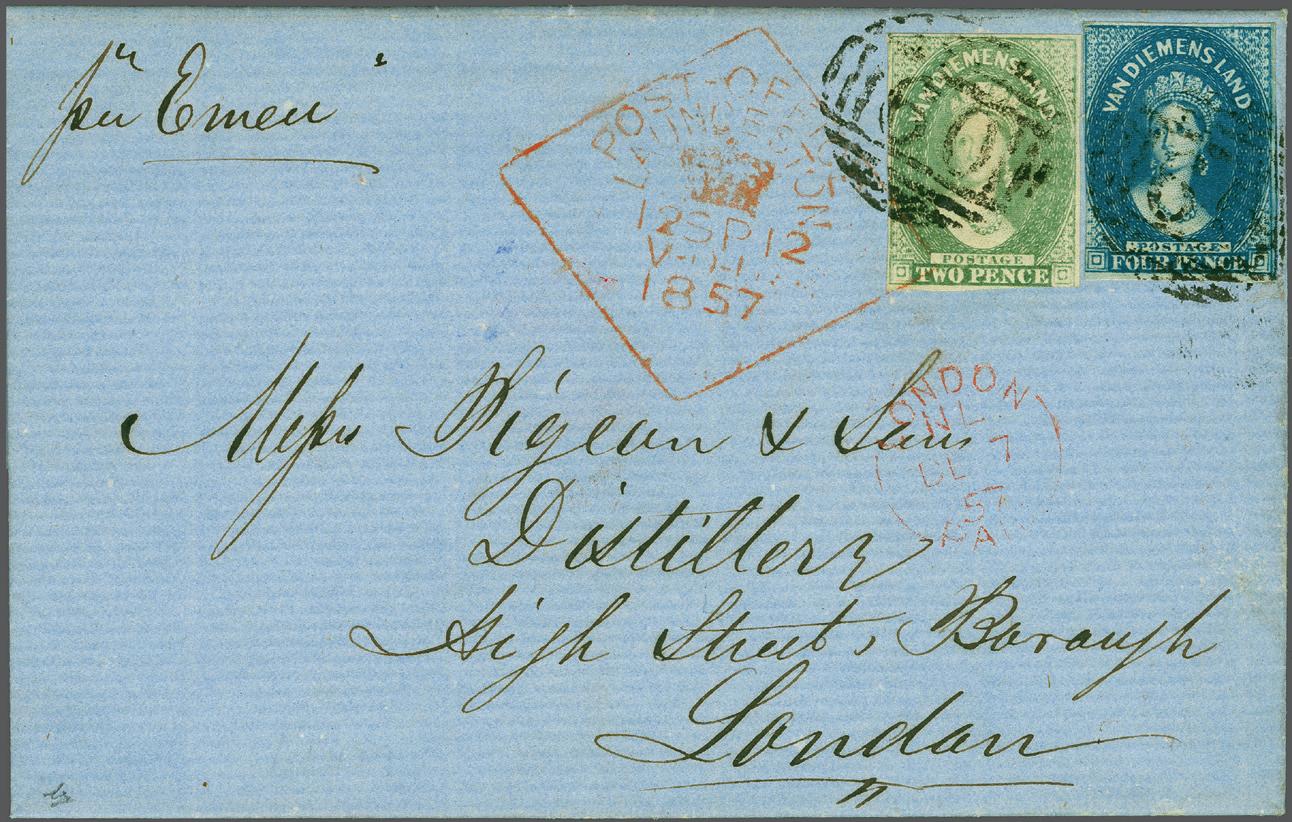 per "Emeu"
POST-OFFICE
LAUNCESTON
12 SP 12
1857
VAN DIEMENS LAND
POSTAGE
TWO PENCE
VAN DIEMENS LAND
POSTAGE
FOUR PENCE
LONDON
NL
DE 7
57
PAID
Messrs Pigeon & Sons
Distillery
High Street, Borough
London